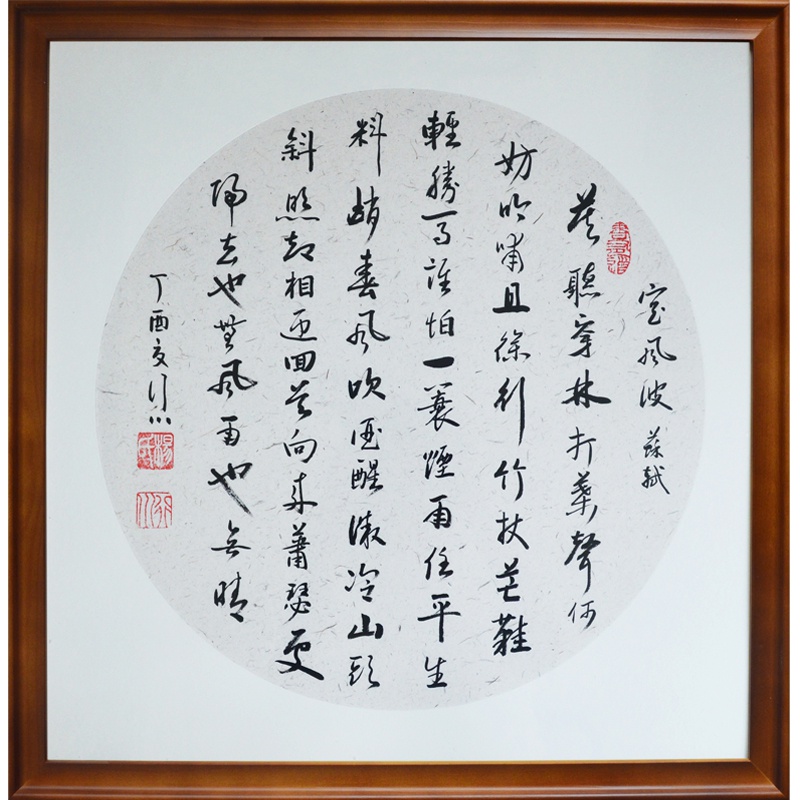 定風波 蘇軾
莫聽穿林打葉聲何
妨吟嘯且徐行竹杖芒鞋
輕勝馬誰怕一蓑煙雨任平生
料峭春風吹酒醒微冷山頭
斜照却相迎回首向來蕭瑟處
歸去也無風雨也無晴
丁酉夏行川